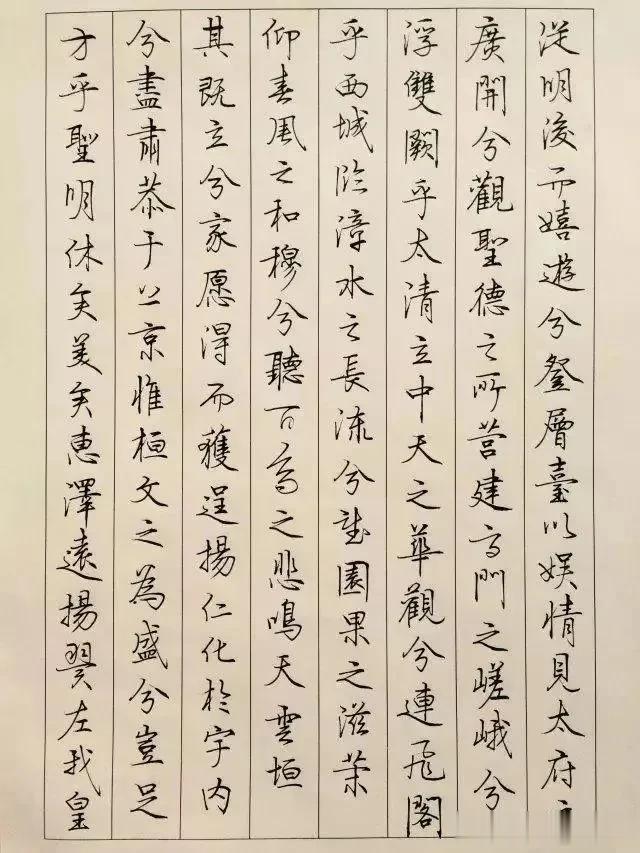 從明後而嬉遊兮登層臺以娛情見太府
廣開兮觀聖德之所營建高門之嵯峨兮
浮雙闕乎太清立中天之華觀兮連飛閣
乎西城臨漳水之長流兮望園果之滋榮
仰春風之和穆兮聽百鳥之悲鳴天雲垣
其既立兮家愿得而獲逞揚仁化於宇内
兮盡肅恭于上京惟桓文之為盛兮豈足
方乎聖明休矣美矣惠澤遠揚翼左我皇